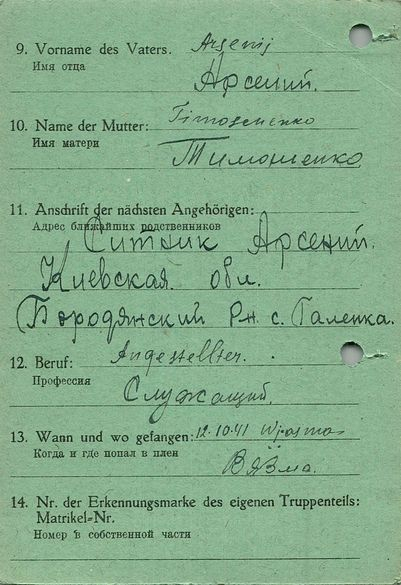 9. Vorname des Vaters. Arsenij
Имя отца
Арсений.
10. Name der Mutter: Timoschenko
Имя матери
Тимошенко
11. Anschrift der nächsten Angehörigen:
Адрес ближайших родственников
Ситник Арсений.
Киевская обл.
Бородянский Рн. с. Галенка.
12. Beruf: Angestellter.
Профессия
Служащий.
13. Wann und wo gefangen: 12.10.41 Wjasma
Когда и где попал в плен
Вязма.
14. Nr. der Erkennungsmarke des eigenen Truppenteils:
Matrikel-Nr.
Номер в собственной части